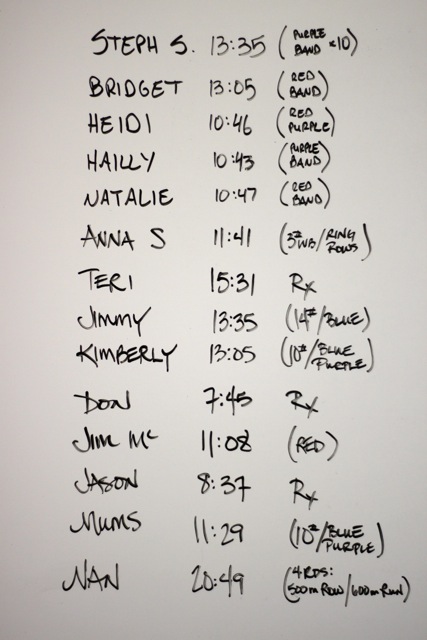 STEPH S. 13:35 (PURPLE BAND x10)
BRIDGET 13:05 (RED BAND)
HEIDI 10:46 (RED PURPLE)
HAILLY 10:43 (PURPLE BAND)
NATALIE 10:47 (RED BAND)
ANNA S 11:41 (3# WB/RING ROWS)
TERI 15:31 Rx
JIMMY 13:35 (14#/BLUE)
KIMBERLY 13:05 (10#/BLUE PURPLE)
DON 7:45 Rx
JIM Mc 11:08 (RED)
JASON 8:37 Rx
MUMS 11:29 (10#/BLUE PURPLE)
NAN 20:49 (4 RDS: 500m ROW/600m RUN)